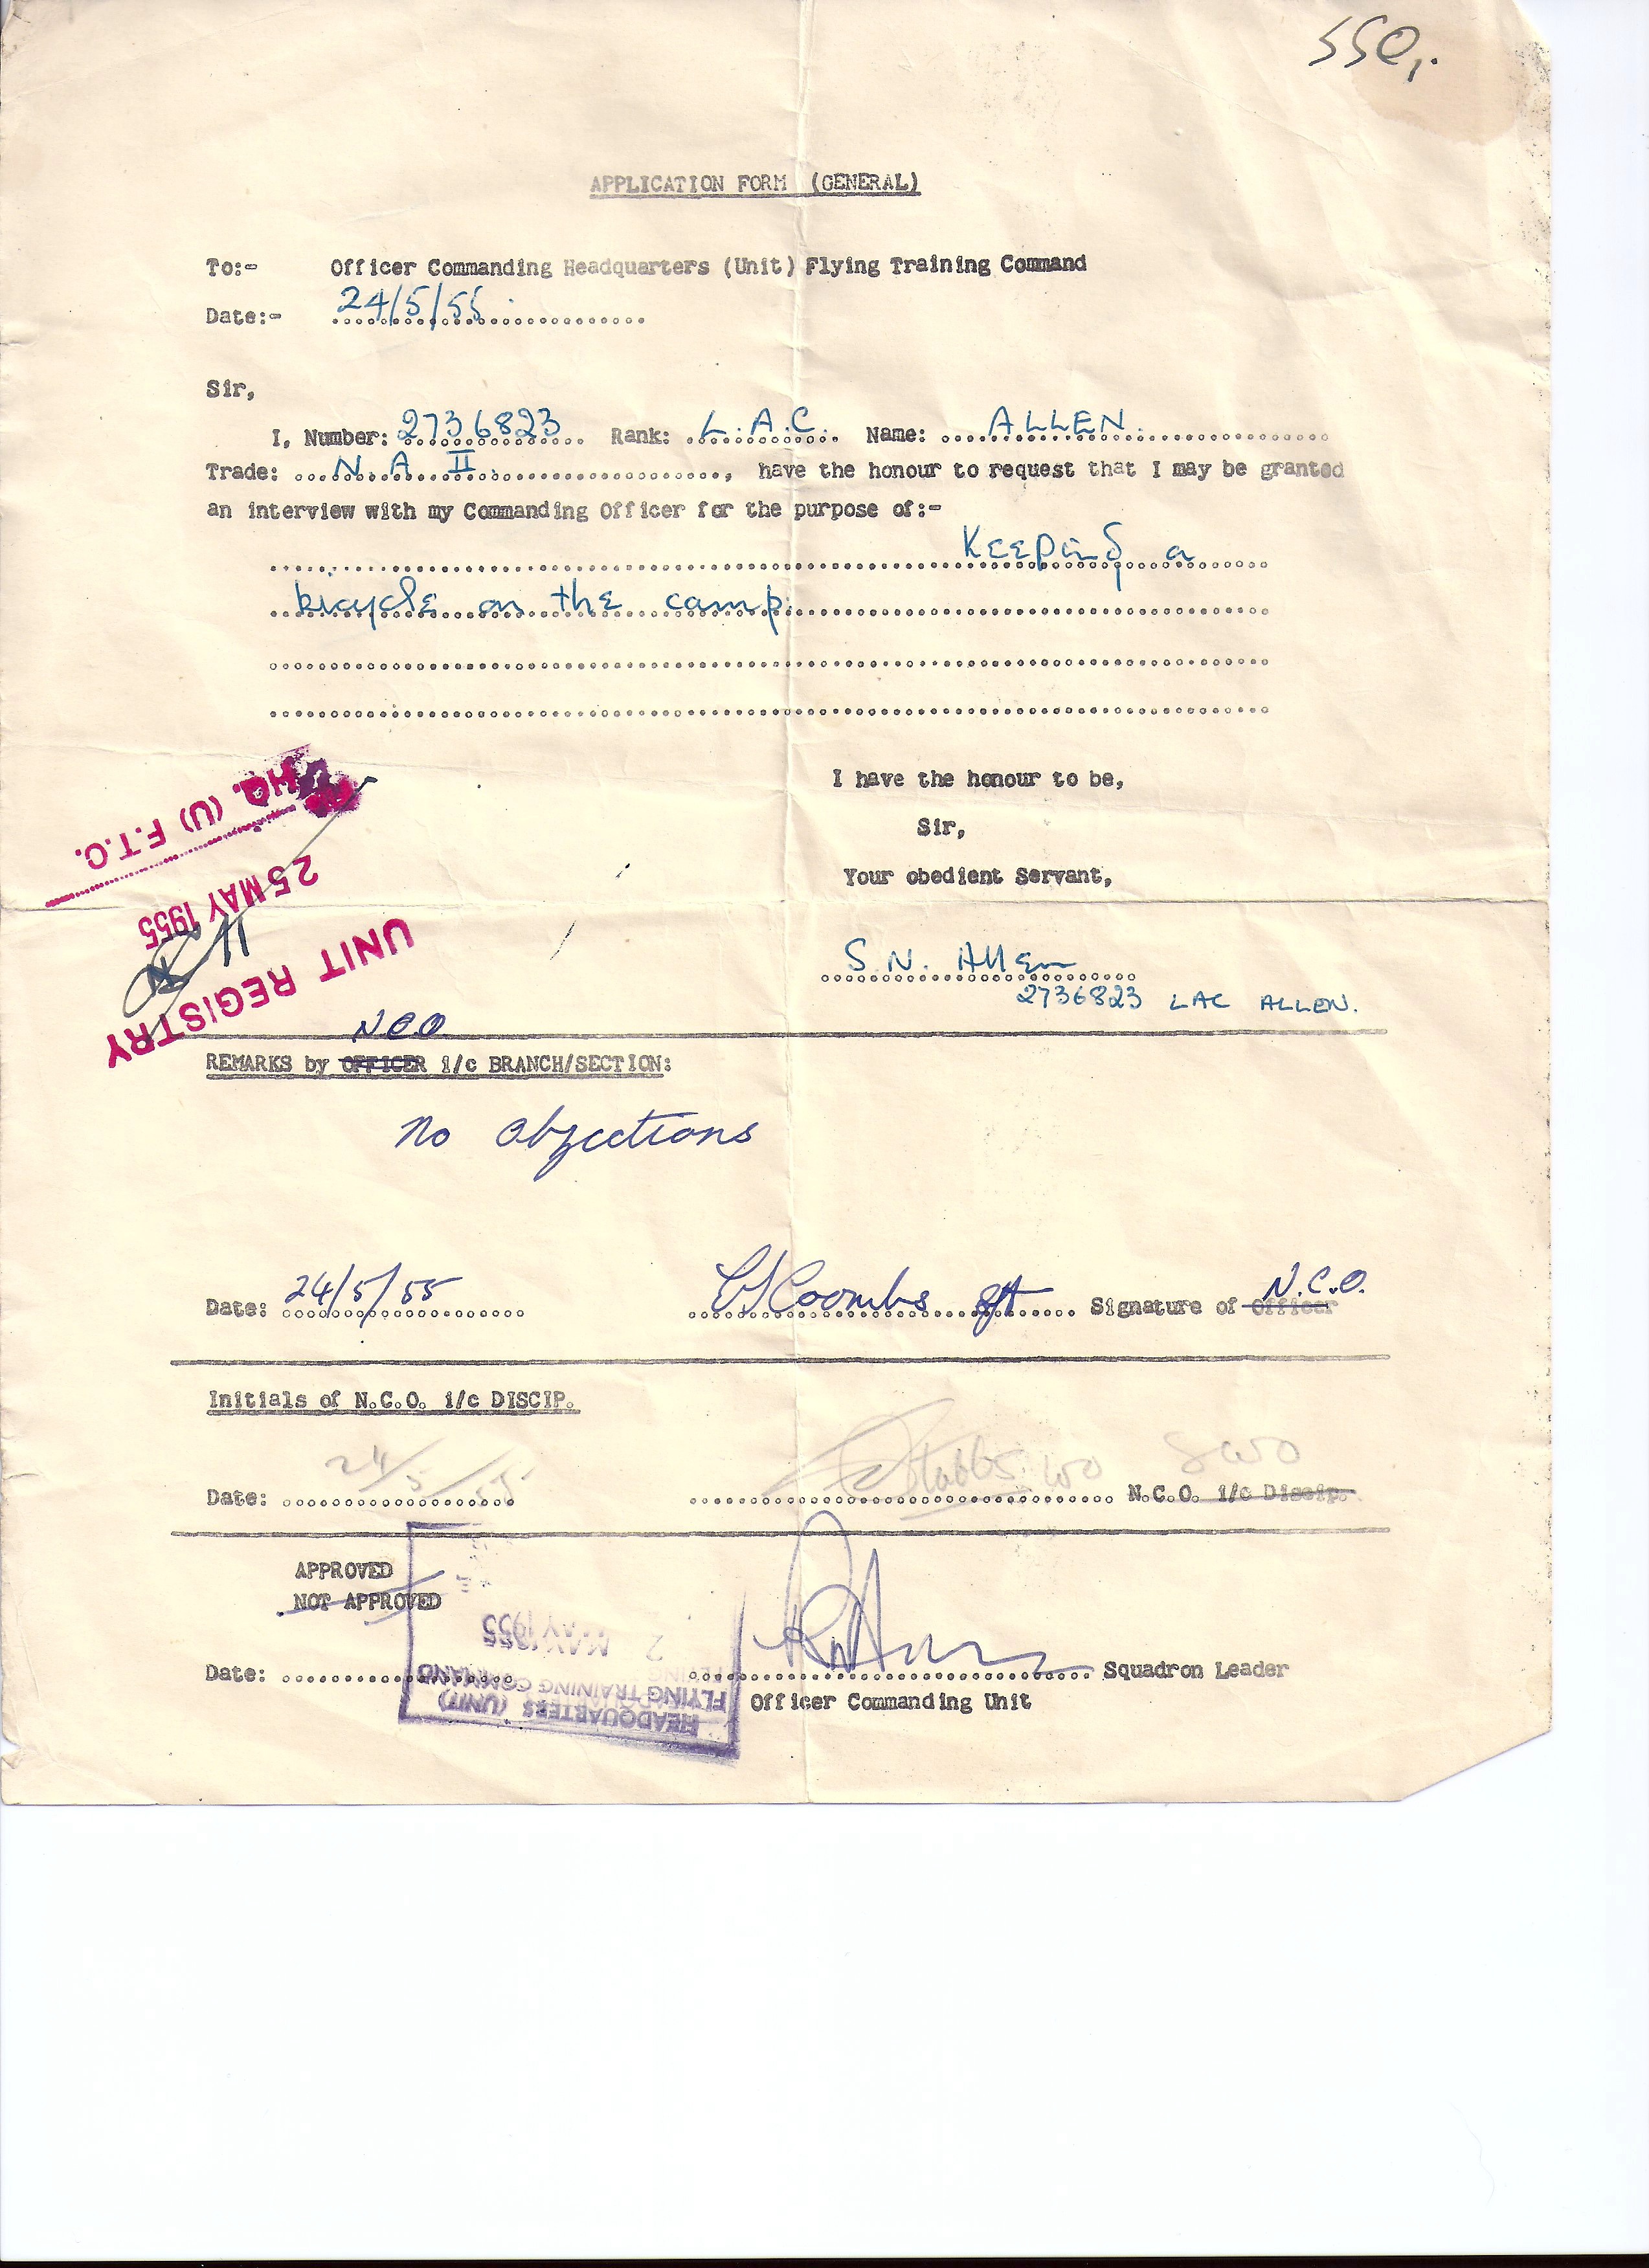 SSQ,.
APPLICATION FORM (GENERAL)
To:- Officer Commanding Headquarters (Unit) Flying Training Command
Date:- 24/5/55.
Sir,
I, Number: 2736823 Rank: L.A.C. Name: ALLEN.
Trade: N. A. II., have the honour to request that I may be granted
an interview with my Commanding Officer for the purpose of:-
Keeping a
bicycle on the camp.
I have the honour to be,
Sir,
Your obedient Servant,
HQ. (U) F.T.C.
25 MAY 1955
UNIT REGISTRY
S.N. Allen
2736823 LAC ALLEN.
N.C.O.
REMARKS by OFFICER i/c BRANCH/SECTION:
No Objections
Date: 24/5/55 Coombs Sgt Signature of Officer N.C.O.
Initials of N.C.O. i/c DISCIP.
Date: 24/5/55 Stabbs WO SWO N.C.O. i/c Discip.
APPROVED
NOT APPROVED
Date: Squadron Leader
Officer Commanding Unit
HEADQUARTERS (UNIT)
FLYING TRAINING COMMAND
MAY 1955